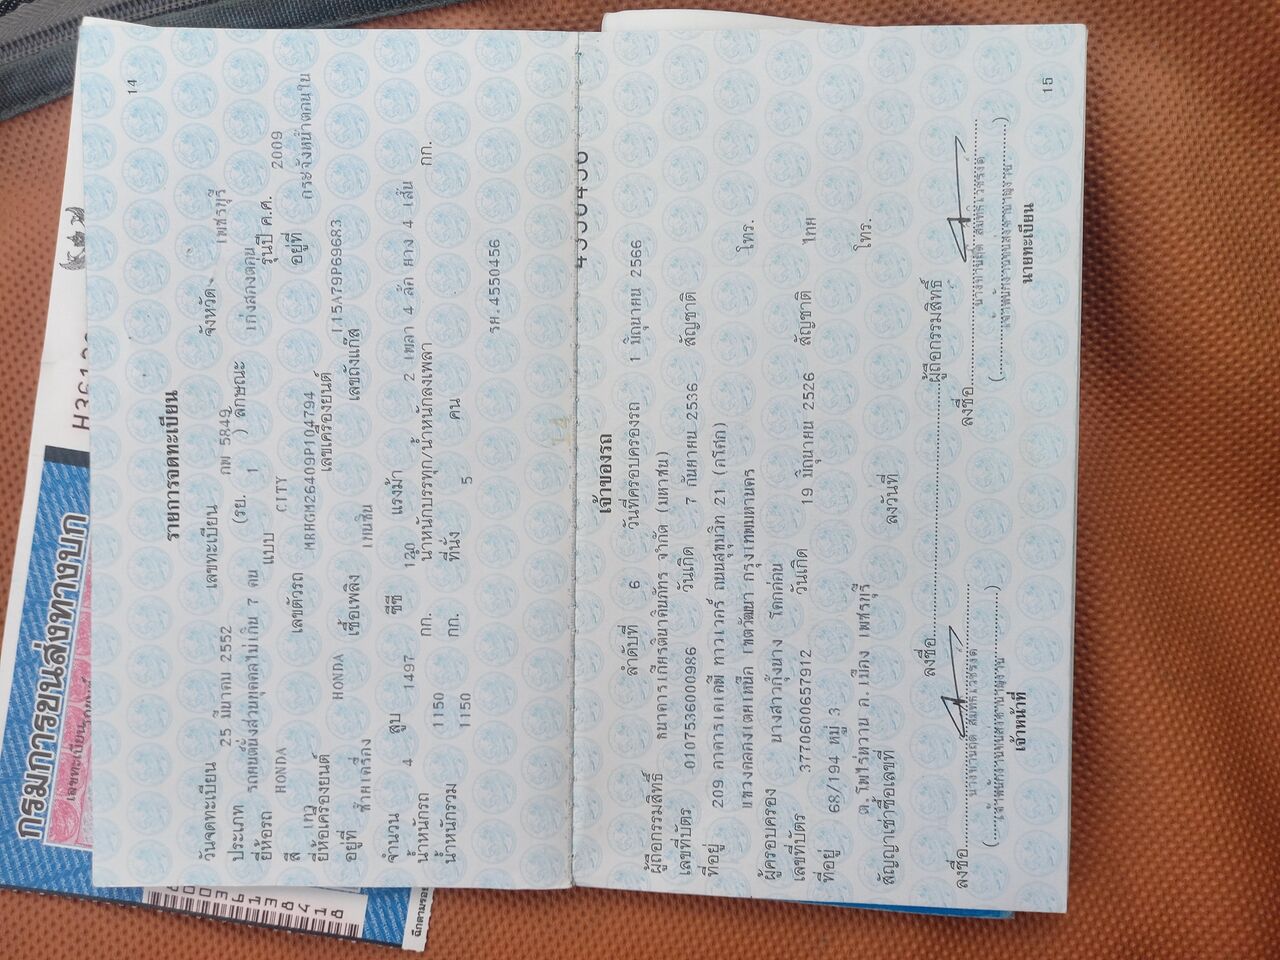 14
รายการจดทะเบียน
วันจดทะเบียน 25 มีนาคม 2552 เลขทะเบียน กพ 5849 จังหวัด เพชรบุรี
ประเภท รถยนต์นั่งส่วนบุคคลไม่เกิน 7 คน (รย. 1 ) ลักษณะ เก๋งสองตอน
ยี่ห้อรถ HONDA แบบ CITY รุ่นปี ค.ศ. 2009
สี เทา เลขตัวรถ MRHGM26409P104794 อยู่ที่ กระจังหน้าตอนใน
ยี่ห้อเครื่องยนต์ HONDA เลขเครื่องยนต์ L15A79P69683
อยู่ที่ ซ้ายเครื่อง เชื้อเพลิง เบนซิน เลขถังแก๊ส
จำนวน 4 สูบ 1497 ซีซี 120 แรงม้า 2 เพลา 4 ล้อ ยาง 4 เส้น
น้ำหนักรถ 1150 กก. น้ำหนักบรรทุก/น้ำหนักลงเพลา กก.
น้ำหนักรวม 1150 กก. ที่นั่ง 5 คน
รผ.4550456
เจ้าของรถ
ลำดับที่ 6 วันที่ครอบครองรถ 1 มิถุนายน 2566
ผู้ถือกรรมสิทธิ์ ธนาคารเกียรตินาคินภัทร จำกัด (มหาชน)
เลขที่บัตร 0107536000986 วันเกิด 7 กันยายน 2536 สัญชาติ
ที่อยู่ 209 อาคารเคเคพี ทาวเวอร์ ถนนสุขุมวิท 21 (อโศก)
แขวงคลองเตยเหนือ เขตวัฒนา กรุงเทพมหานคร โทร.
ผู้ครอบครอง นางสาวกุ้งนาง โตกอ่อน
เลขที่บัตร 3770600657912 วันเกิด 19 มิถุนายน 2526 สัญชาติ ไทย
ที่อยู่ 68/194 หมู่ 3
ต. โพไร่หวาน อ. เมือง เพชรบุรี โทร.
สัญญาเช่าซื้อเลขที่ ลงวันที่
ลงชื่อ ผู้ถือกรรมสิทธิ์
ลงชื่อ ลงชื่อ
เจ้าหน้าที่ นายทะเบียน
15
กรมการขนส่งทางบก